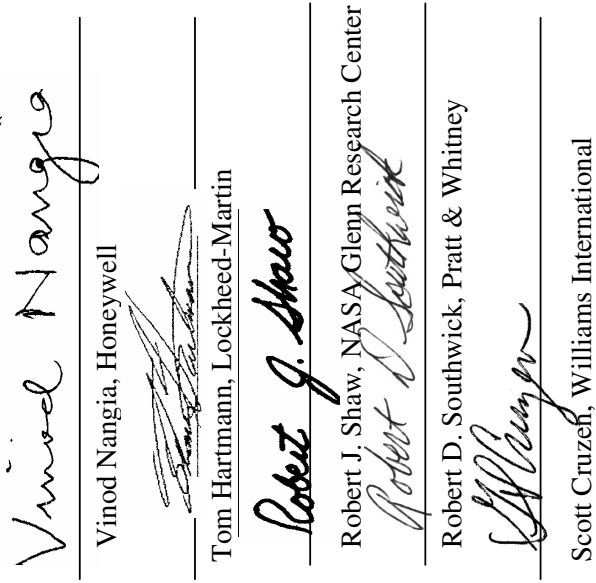 Vinod Nangia
Vinod Nangia, Honeywell
Tom Hartmann, Lockheed-Martin
Robert J. Shaw
Robert J. Shaw, NASA Glenn Research Center
Robert D Southwick
Robert D. Southwick, Pratt & Whitney
Scott Cruzen, Williams International